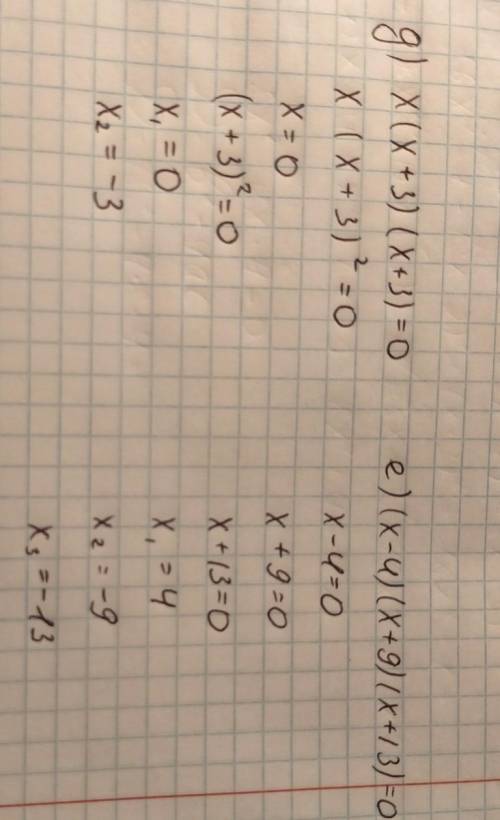 g) x(x+3)(x+3)=0
x(x+3)²=0
x=0
(x+3)²=0
x₁=0
x₂=-3
е) (x-4)(x+9)(x+13)=0
x-4=0
x+9=0
x+13=0
x₁=4
x₂=-9
x₃=-13